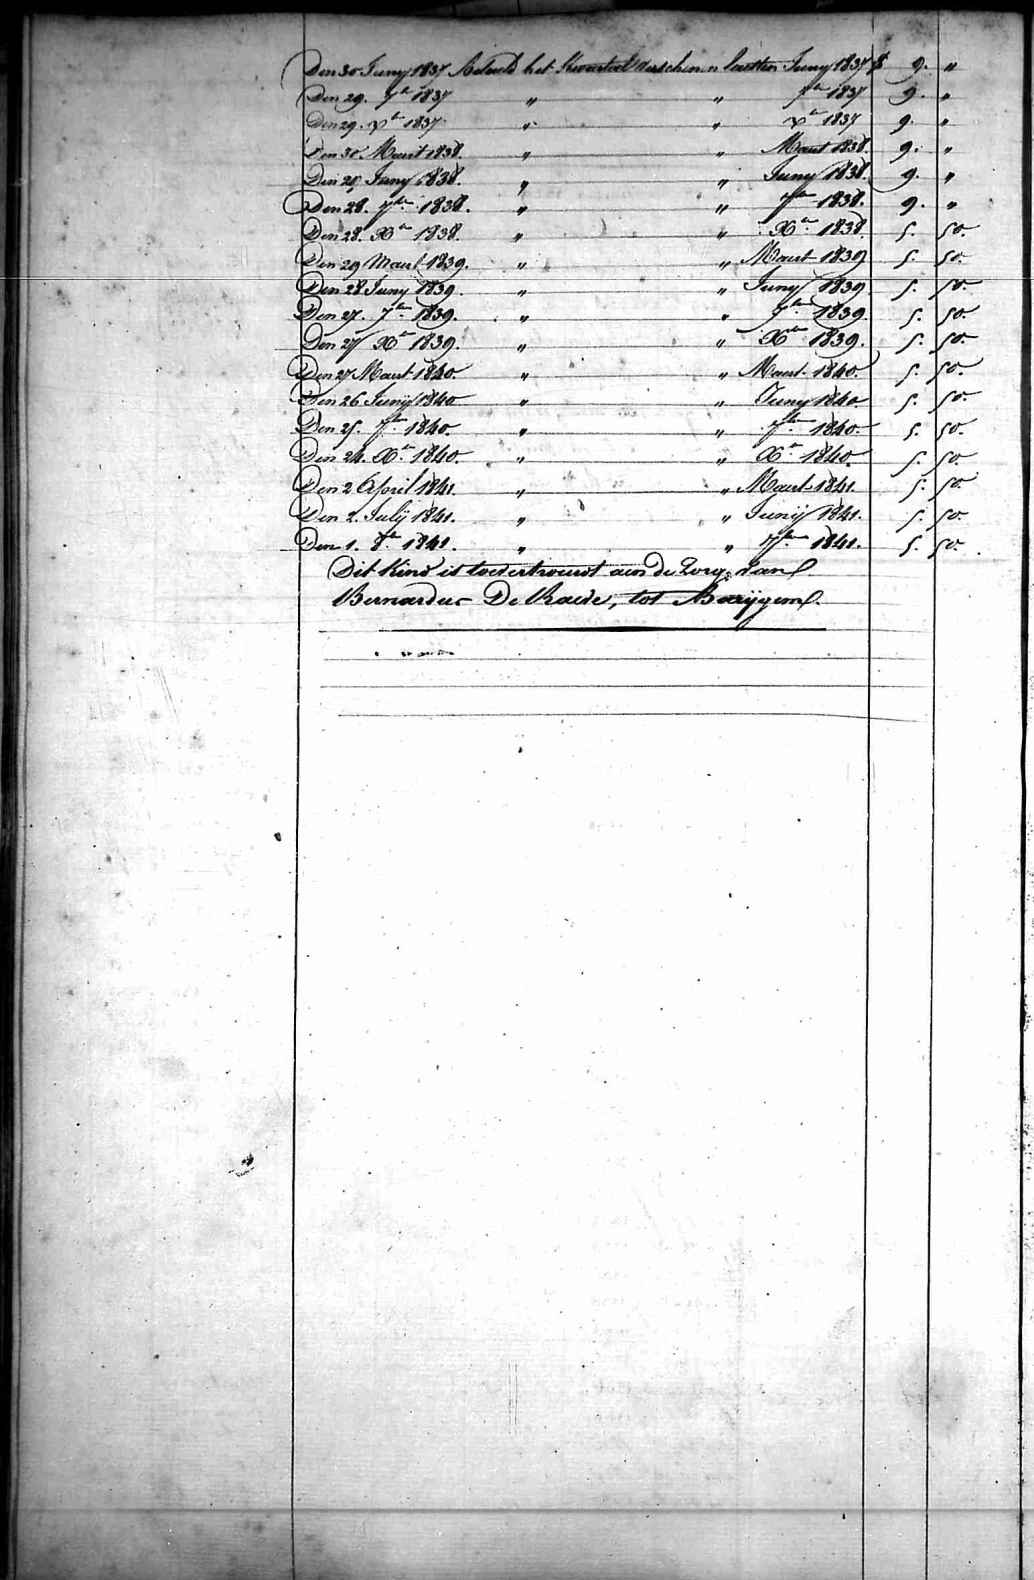 Den 30 Juny 1837 Betaeld het Kwartael verschenen laetsten Juny 1837 f 9. "
Den 29. 7br 1837 " " 7br 1837 9. "
Den 29. Xr 1837 " " Xr 1837 9. "
Den 30 Maert 1838. " " Maert 1838. 9. "
Den 29 Juny 1838. " " Juny 1838. 9. "
Den 28. 7bre 1838. " " 7bre 1838. 9. "
Den 28. Xr 1838. " " Xr 1838. 5. 50.
Den 29 Maert 1839. " " Maert 1839 5. 50.
Den 28 Juny 1839. " " Juny 1839 5. 50.
Den 27. 7bre 1839. " " 7bre 1839 5. 50.
Den 27 Xr 1839. " " Xr 1839. 5. 50.
Den 27 Maert 1840. " " Maert 1840. 5. 50.
Den 26 Junij 1840 " " Juny 1840. 5. 50.
Den 25. 7bre 1840. " " 7bre 1840. 5. 50.
Den 24. Xr 1840. " " Xr 1840. 5. 50.
Den 2 April 1841. " " Maert 1841. 5. 50.
Den 2. Julij 1841. " " Junij 1841. 5. 50.
Den 1. 8br 1841. " " 7bre 1841. 5. 50.
Dit Kind is toevertrouwt aen de Zorg van
Bernardus De Raeve, tot